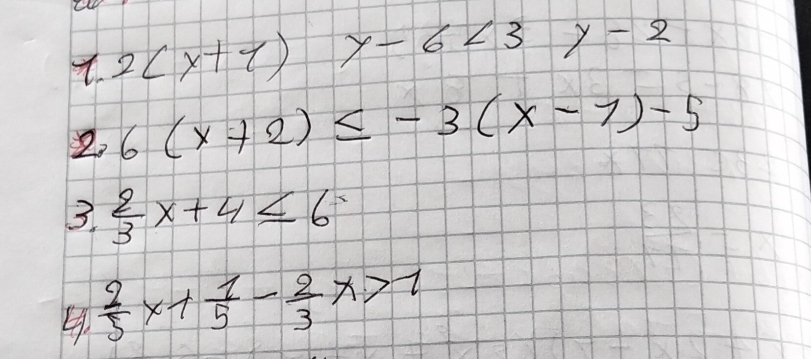 1. 2(y+1) y-6<3 y-2
2. 6(x+2) ≤ -3(x-1)-5
3. 2/3 x+4 ≤ 6
4. 2/5 x+1/5-2/3 x>1